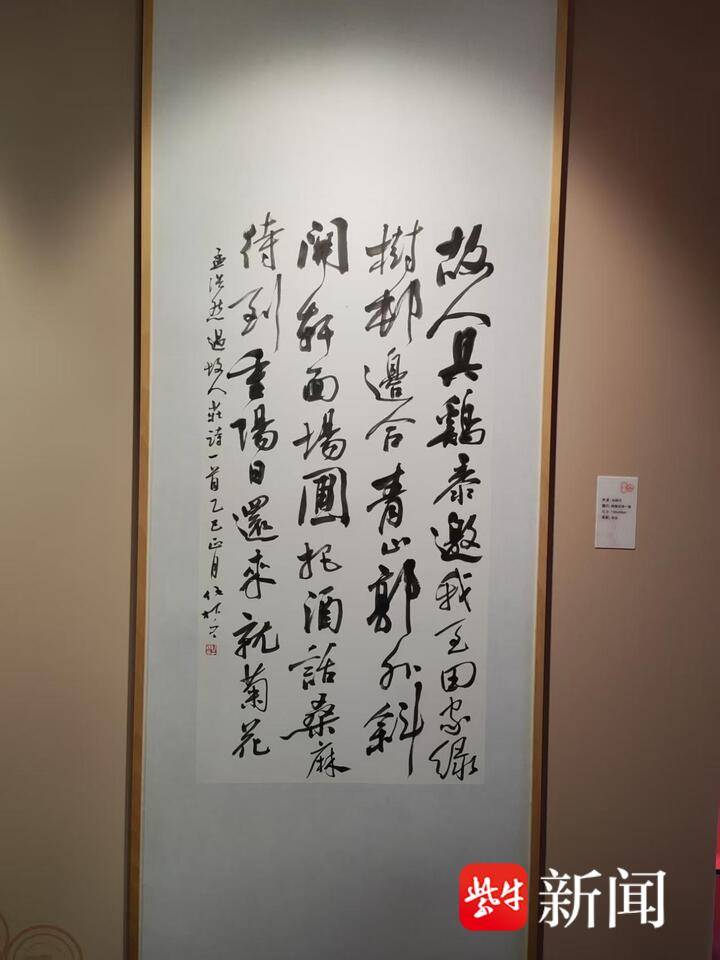 故人具鷄黍邀我至田家緑
樹邨邊合青山郭外斜
開軒面場圃把酒話桑麻
待到重陽日還來就菊花
孟浩然過故人莊詩一首乙巳正月
紫牛
新闻